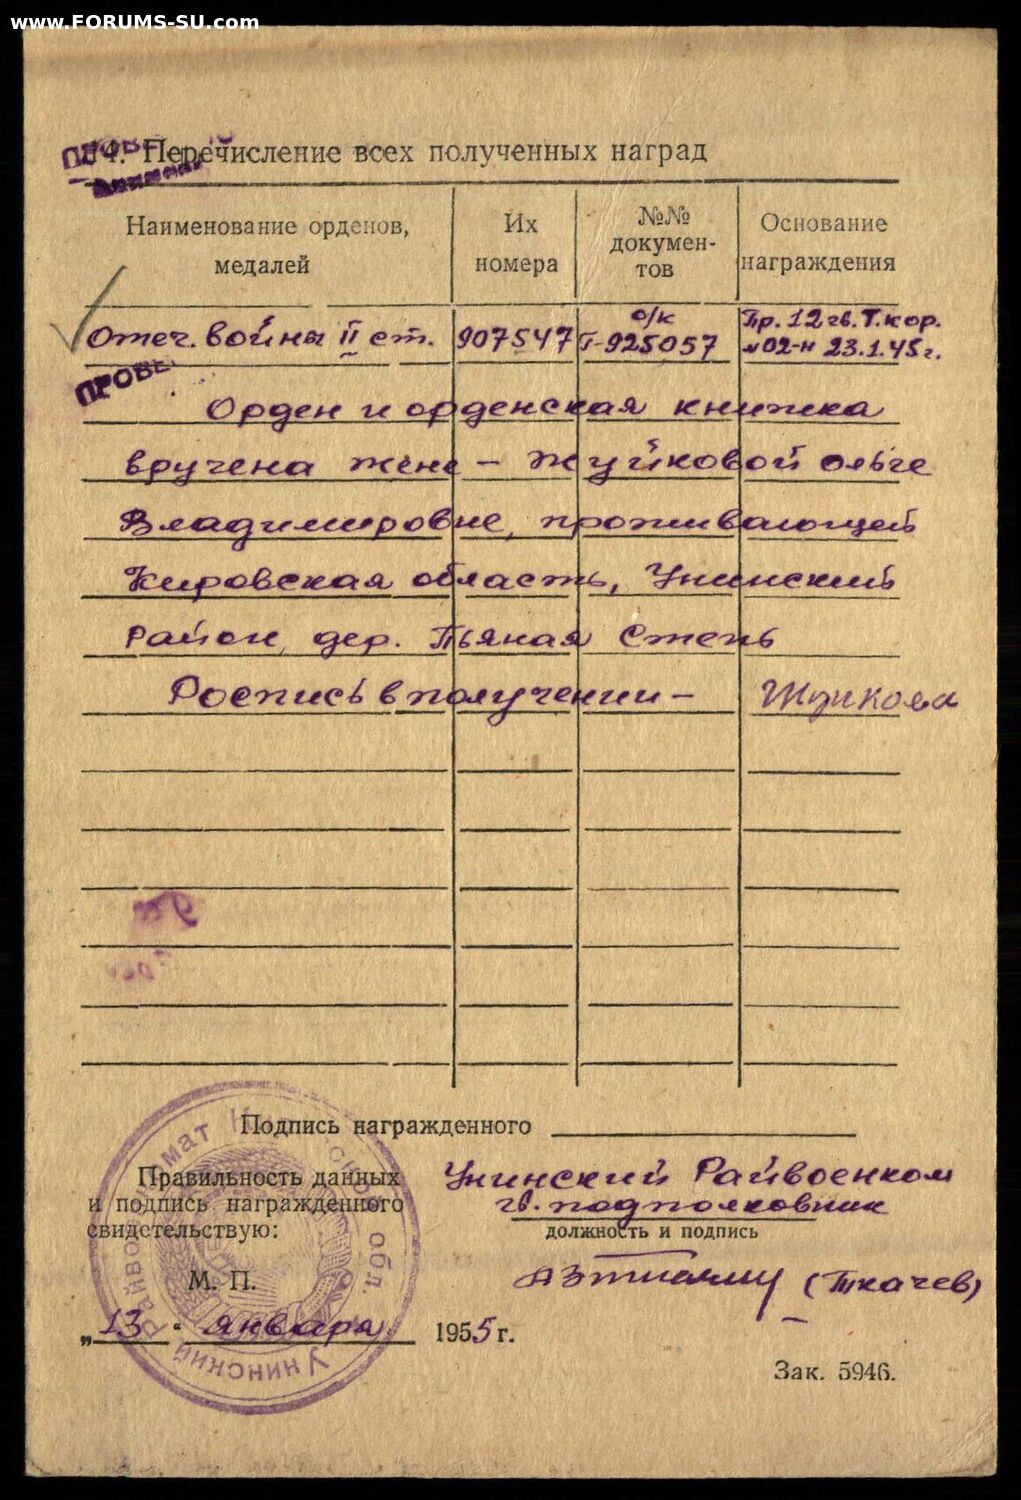 www.FORUMS-SU.com
14. Перечисление всех полученных наград
Наименование орденов, медалей
Их номера
№№ докумен-тов
Основание награждения
Отеч. войны II ст. 907547 о/к Г-925057 Пр. 12 гв. Т. кор. №02-н 23.1.45 г.
ПРОВЕ
Орден и орденская книжка
вручена жене – Жуйковой Ольге
Владимировне, проживающей
Кировская область, Унинский
район, дер. Пьяная Степь
Роспись в получении – Жуйкова
Подпись награжденного
Правильность данных
и подпись награжденного
свидетельствую:
Унинский Райвоенком
гв. подполковник
должность и подпись
М. П.
(Ткачев)
„13“ января 1955 г.
Зак. 5946.
Унинский обл.